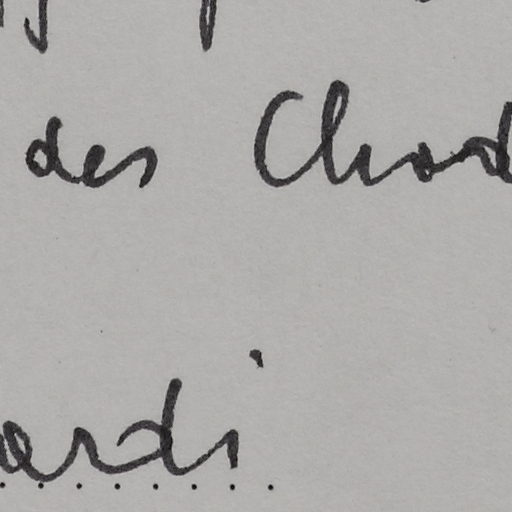 des Chord
ardi